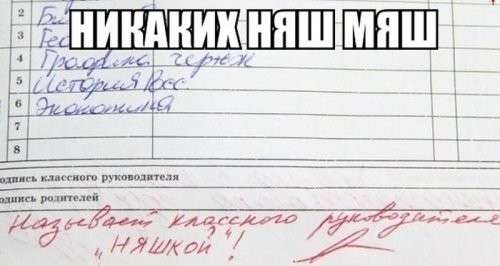 НИКАКИХ НЯШ МЯШ
2
3
4 Графика чертёж
5 История Росс
6 Экономика
7
8
одпись классного руководителя
одпись родителей
Называет классного руководителя
„НЯШКОЙ"!